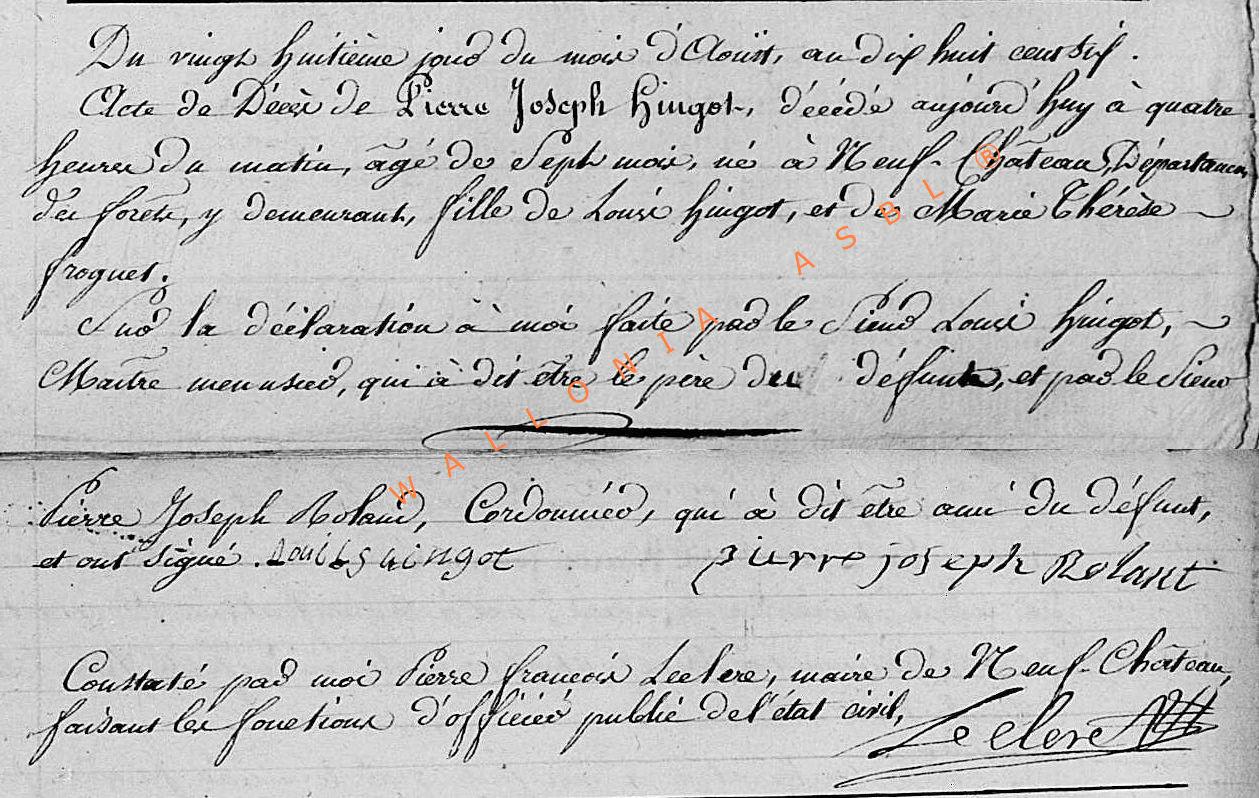 Du vingt huitième jour du mois d'Aoüst, an dix huit cent six.
Acte de Décès de Pierre Joseph Hingot, décédé aujourd'huy à quatre
heures du matin, âgé de Sept mois, né à Neuf-Château, Département
des forêts, y demeurant, fille de Louis hingot, et de Marie Thérèse
froguet.
Sur la déclaration à moi faite par le Sieur Louis hingot,
Maître menusier, qui à dit être le père du défunt, et par le Sieur
Pierre Joseph Roland, Cordonnier, qui à dit être ami du défunt,
et ont signé. Louis hingot pierre joseph Rolant
Constaté par moi Pierre françois Leclere, maire de Neuf-Château,
faisant les fonctions d'officier public de l'état civil,
Leclere
WALLONIA ASBL ®